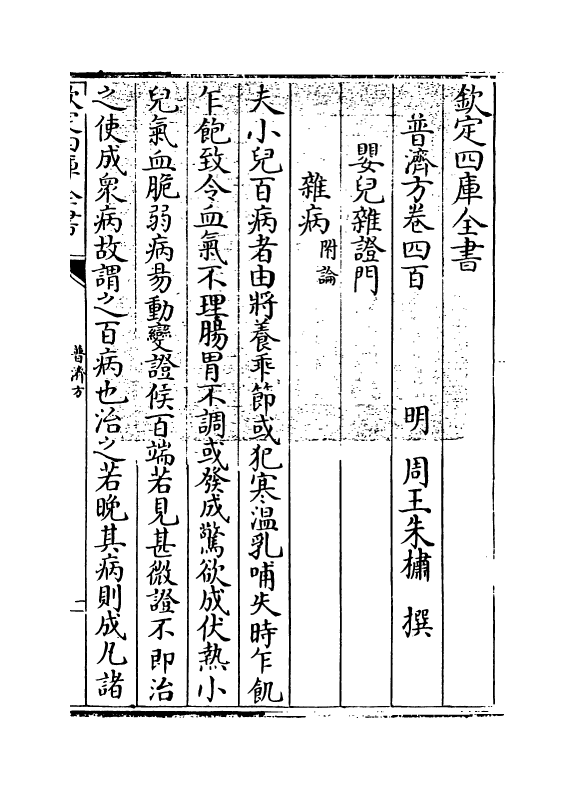 欽定四庫全書
普濟方卷四百 明 周王朱橚 撰
嬰兒雜證門
雜病附論
夫小兒百病者由將養乖節或犯寒溫乳哺失時乍飢
乍飽致令血氣不理腸胃不調或發成驚欲成伏熱小
兒氣血脆弱病易動變證候百端若見甚微證不即治
之使成衆病故謂之百病也治之若晚其病則成凡諸
欽定四庫全書
普濟方